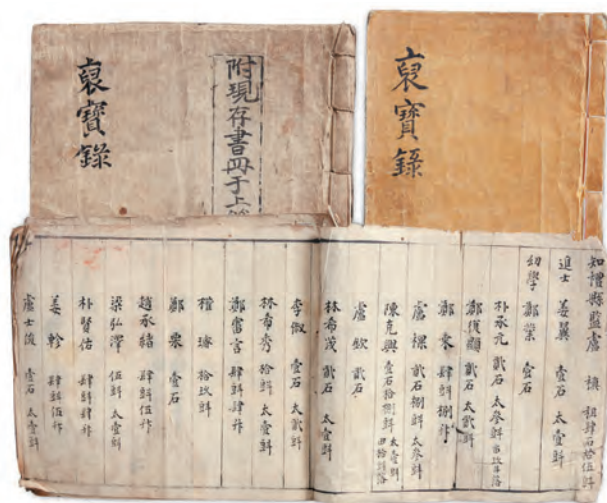 裒寶錄
附現存書冊于上
裒寶錄
知禮縣監盧 禛 租肆石拾伍斗
進士 姜翼 壹石 太壹斗
幼學 鄭業 壹石
朴承元 貳石 太參斗
鄭復顯 貳石 太貳斗
鄭 肆斗捌升
盧祼 貳石捌斗 太參斗
陳克興 壹石拾捌斗 太壹斗
盧欽 貳石
林希茂 貳石 太壹斗
李俶 壹石 太貳斗
林希秀 拾斗 太壹斗
鄭富宮 肆斗肆升
權 拾玖斗
鄭 壹石
趙承緒 肆斗伍升
梁弘澤 伍斗 太壹斗
朴賢佑 肆斗肆升
姜 肆斗伍升
盧士俊 壹石 太壹斗